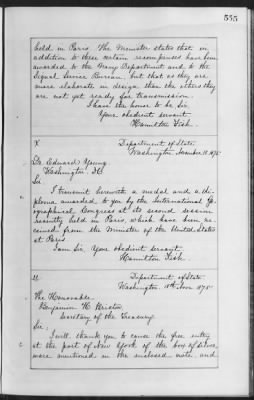 555
held in Paris. The Minister states that in
addition to these certain recompenses have been
awarded to the Navy Department and to the
Signal Service Bureau, but that as they are
more elaborate in design than the others they
are not yet ready for transmission.
I have the honor to be Sir,
Your obedient servant
Hamilton Fish.
Department of State
Washington, November 18, 1875.
Dr. Edward Young,
Washington, D.C.
Sir
I transmit herewith a medal and a di-
ploma awarded to you by the International Ge-
ographical Congress at its second session
recently held in Paris, which have been re-
ceived from the Minister of the United States
at Paris
I am Sir Your obedient servant,
Hamilton Fish.
Department of State
Washington 18th Nov. 1875
The Honorable
Benjamin H. Bristow,
Secretary of the Treasury.
Sir,
I will thank you to cause the free entry
at the port of New York of the box
were mentioned in the enclosed note, and